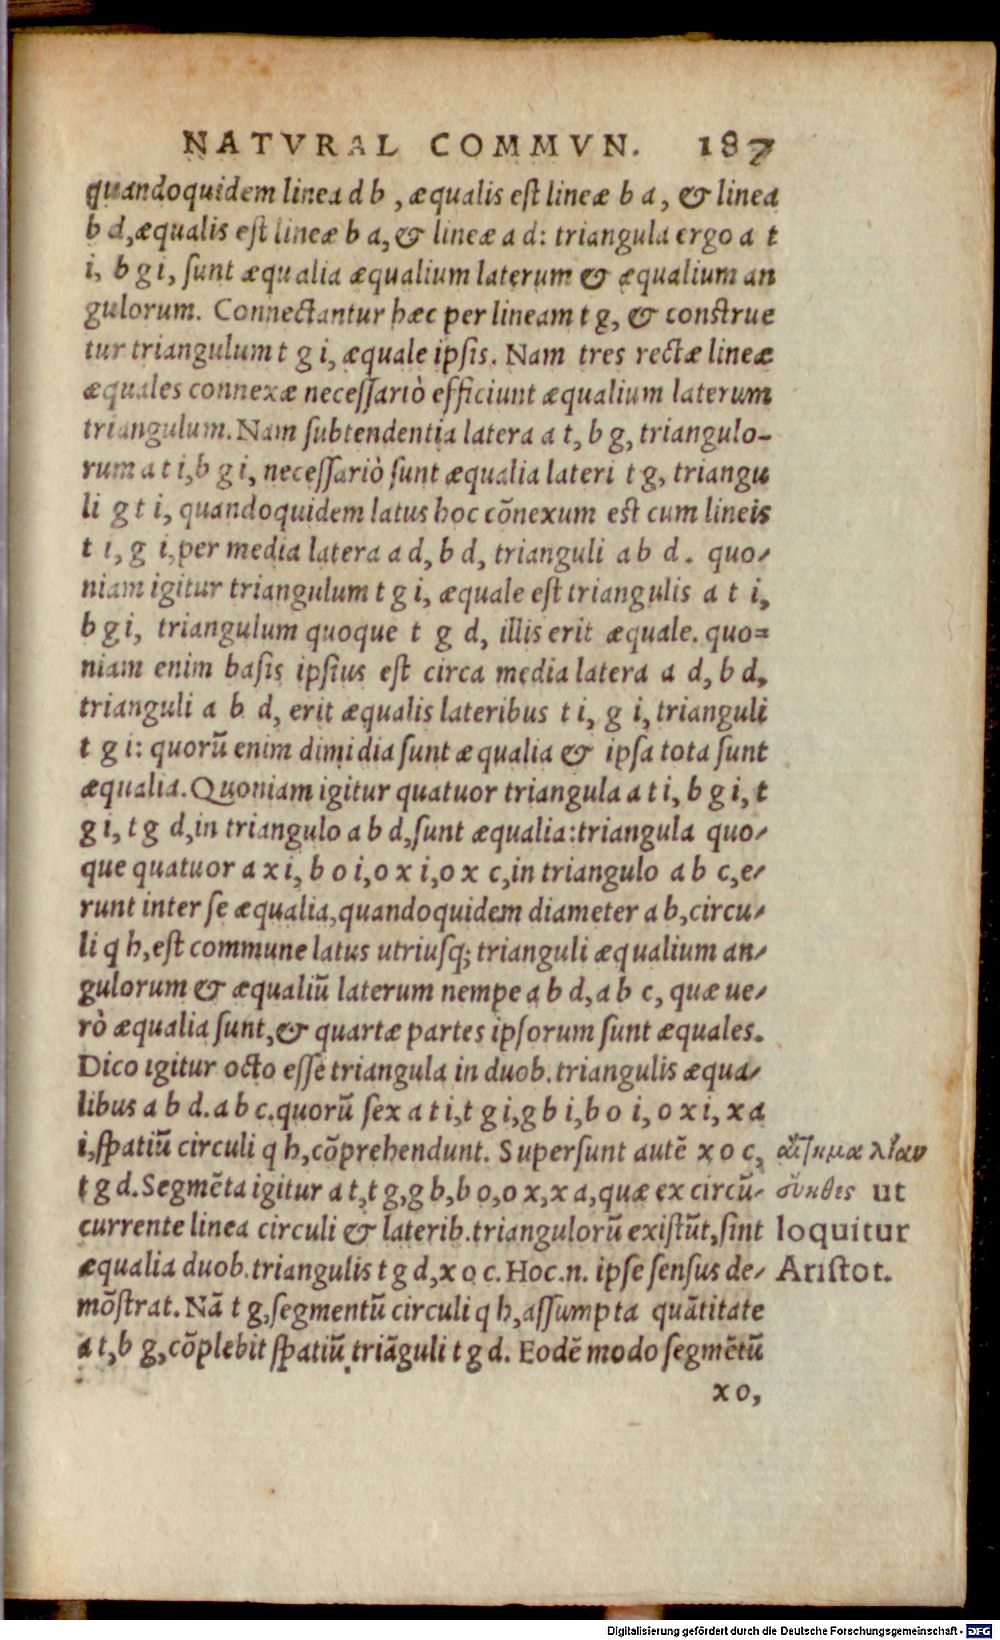 NATVRAL COMMVN. 187
quandoquidem linea d b, æqualis est lineæ b a, & linea
b d, æqualis est lineæ b a, & lineæ a d: triangula ergo a t
i, b g i, sunt æqualia æqualium laterum & æqualium an
gulorum. Connectantur hæc per lineam t g, & construe
tur triangulum t g i, æquale ipsis. Nam tres rectæ lineæ
æquales connexæ necessariò efficiunt æqualium laterum
triangulum. Nam subtendentia latera a t, b g, triangulo-
rum a t i, b g i, necessariò sunt æqualia lateri t g, triangu
li g t i, quandoquidem latus hoc cōnexum est cum lineis
t i, g i, per media latera a d, b d, trianguli a b d. quo-
niam igitur triangulum t g i, æquale est triangulis a t i,
b g i, triangulum quoque t g d, illis erit æquale. quo-
niam enim basis ipsius est circa media latera a d, b d,
trianguli a b d, erit æqualis lateribus t i, g i, trianguli
t g i: quorū enim dimidia sunt æqualia & ipsa tota sunt
æqualia. Quoniam igitur quatuor triangula a t i, b g i, t
g i, t g d, in triangulo a b d, sunt æqualia: triangula quo-
que quatuor a x i, b o i, o x i, o x c, in triangulo a b c, e-
runt inter se æqualia, quandoquidem diameter a b, circu-
li q h, est commune latus utriusq; trianguli æqualium an-
gulorum & æqualiū laterum nempe a b d, a b c, quæ ue-
rò æqualia sunt, & quartæ partes ipsorum sunt æquales.
Dico igitur octo esse triangula in duob. triangulis æqua-
libus a b d. a b c. quorū sex a t i, t g i, g b i, b o i, o x i, x a
i, spatiū circuli q h, cōprehendunt. Supersunt autē x o c,
t g d. Segmēta igitur a t, t g, g b, b o, o x, x a, quæ ex circū-
currente linea circuli & laterib. triangulorū existūt, sint
æqualia duob. triangulis t g d, x o c. Hoc .n. ipse sensus de-
mōstrat. Nā t g, segmentū circuli q h, assumpta quātitate
a t, b g, cōplebit spatiū triāguli t g d. Eodē modo segmētū
x o,
λίαν
ut
loquitur
Aristot.
Digitalisierung gefördert durch die Deutsche Forschungsgemeinschaft - DFG